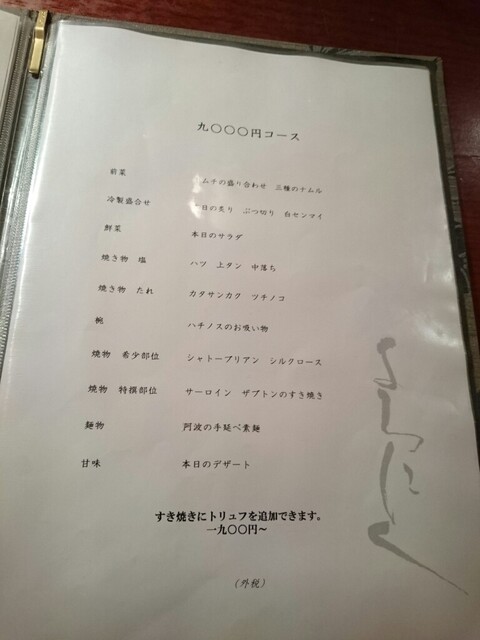 九〇〇〇円コース
前菜 ムチの盛り合わせ 三種のナムル
冷製盛合せ 日の炙り ぶつ切り 白センマイ
鮮菜 本日のサラダ
焼き物 塩 ハツ 上タン 中落ち
焼き物 たれ カタサンカク ツチノコ
椀 ハチノスのお吸い物
焼物 希少部位 シャトーブリアン シルクロース
焼物 特撰部位 サーロイン ザブトンのすき焼き
麺物 阿波の手延べ素麺
甘味 本日のデザート
すき焼きにトリュフを追加できます。
一九〇〇円～
(外税)
よろにく